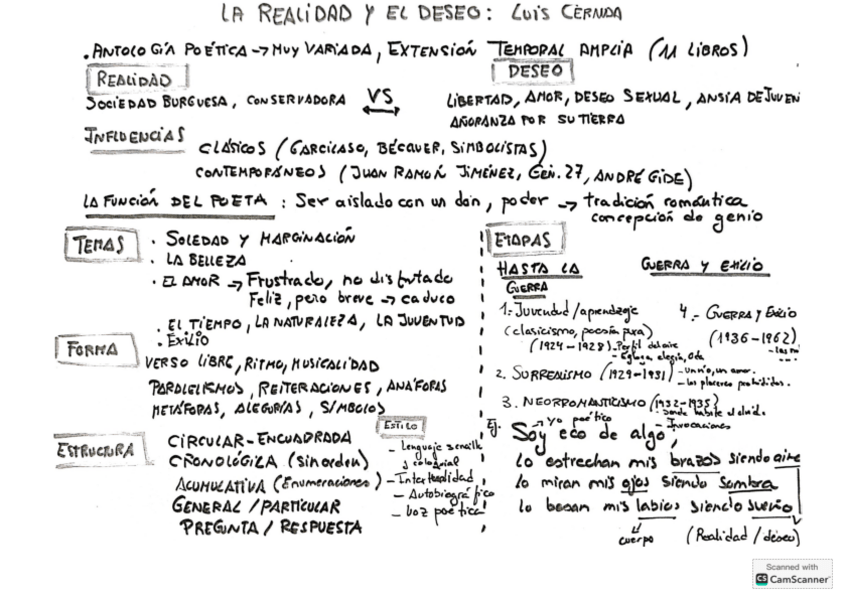 LA REALIDAD Y EL DESEO: LUIS CERNUDA
. ANTOLOGÍA POÉTICA → MUY VARIADA, EXTENSIÓN TEMPORAL AMPLIA (11 LIBROS)
REALIDAD
DESEO
SOCIEDAD BURGUESA, CONSERVADORA VS LIBERTAD, AMOR, DESEO SEXUAL, ANSIA DE JUVEN
AÑORANZA POR SU TIERRA
INFLUENCIAS
CLÁSICOS (GARCILASO, BÉCQUER, SIMBOLISTAS)
CONTEMPORÁNEOS (JUAN RAMÓN JIMÉNEZ, GEN. 27, ANDRÉ GIDE)
LA FUNCIÓN DEL POETA : Ser aislado con un don, poder → tradición romántica
concepción de genio
TEMAS
. SOLEDAD Y MARGINACIÓN
. LA BELLEZA
. EL AMOR → Frustrado, no disfrutado
Feliz, pero breve → caduco
. EL TIEMPO, LA NATURALEZA, LA JUVENTUD
. EXILIO
FORMA
VERSO LIBRE, RITMO, MUSICALIDAD
PARALELISMOS, REITERACIONES, ANÁFORAS
METÁFORAS, ALEGORÍAS, SÍMBOLOS
ESTRUCTURA
CIRCULAR-ENCUADRADA
CRONOLÓGICA (sin orden)
ACUMULATIVA (Enumeraciones)
GENERAL / PARTICULAR
PREGUNTA / RESPUESTA
ESTILO
- Lenguaje sencillo
y coloquial
- Intertextualidad
- Autobiográfico
- Voz poética
ETAPAS
HASTA LA
GUERRA
1.- Juventud / aprendizaje
(clasicismo, poesía pura)
(1924 - 1928) - Perfil del aire
- Égloga, elegía, Oda
2. SURREALISMO (1929-1931) - Un río, un amor.
- Los placeres prohibidos.
3. NEORROMANTICISMO (1932-1935)
- Donde habite el olvido.
- Invocaciones
GUERRA Y EXILIO
4.- GUERRA Y EXILIO
(1936-1962)
Ej.
→ Yo poético
Soy eco de algo,
lo estrechan mis brazos siendo aire
lo miran mis ojos siendo sombra
lo besan mis labios siendo sueño
cuerpo
(Realidad / deseo)
Scanned with
CS CamScanner